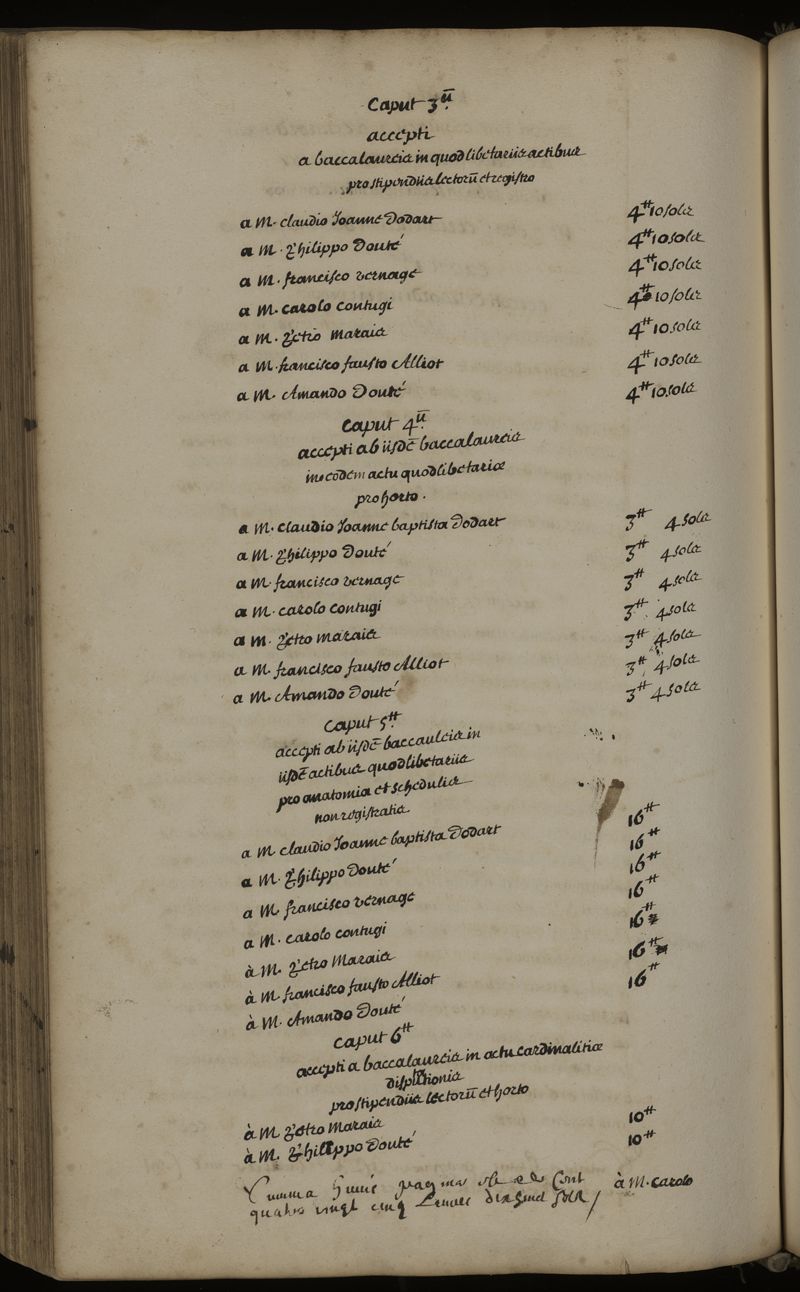 Caput 3ū.
accepti
a baccalaureis in quodlibetariis actibus
pro stipendiis lectorū et registro
a M. claudio Joanne Dodart 4tt 10 sols
a M. Philippo Douté 4tt 10 sols
a M. francisco vernage 4tt 10 sols
a M. carolo contugi 4tt 10 sols
a M. Petro Marais 4tt 10 sols
a M. francisco fausto Alliot 4tt 10 sols
a M. Amando Douté 4tt 10 sols
Caput 4ū.
accepti ab iisdē baccalaureis
in eodem actu quodlibetario
pro horto.
a M. claudio Joanne baptista Dodart 3tt 4 sols
a M. Philippo Douté 3tt 4 sols
a M. francisco vernage 3tt 4 sols
a M. carolo contugi 3tt 4 sols
a M. Petro Marais 3tt 4 sols
a M. francisco fausto Alliot 3tt 4 sols
a M. Amando Douté 3tt 4 sols
Caput 5tt
accepti ab iisdē baccauleis in
iisdē actibus quodlibetariis
pro anatomia et schedulis
non registratis
a M. claudio Joanne baptista Dodart 16tt
a M. Philippo Douté 16tt
a M. francisco vernage 16tt
a M. carolo contugi 16tt
à M. Petro Marais 16tt
à M. francisco fausto Alliot 16tt
à M. Amando Douté 16tt
Caput 6tt
accepti a baccalaureis in actu cardinalitiæ
disputionis
pro stipendiis lectorū et horto
à M. Petro Marais 10tt
à M. Philippo Douté 10tt
Summa est Cent à M. carolo
quatre vingt cinq sols